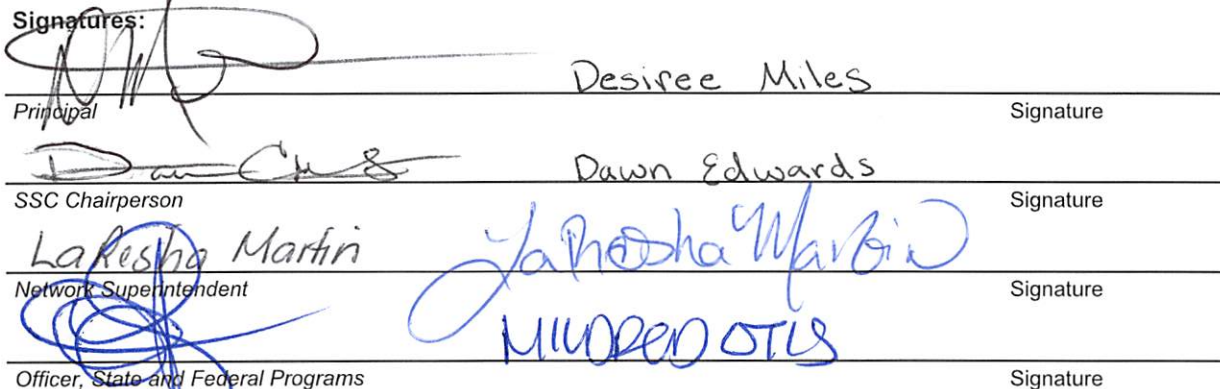 Signatures:
Desiree Miles
Principal Signature
Dawn Edwards
SSC Chairperson Signature
LaResha Martin LaResha Martin
Network Superintendent Signature
MILDRED OTIS
Officer, State and Federal Programs Signature